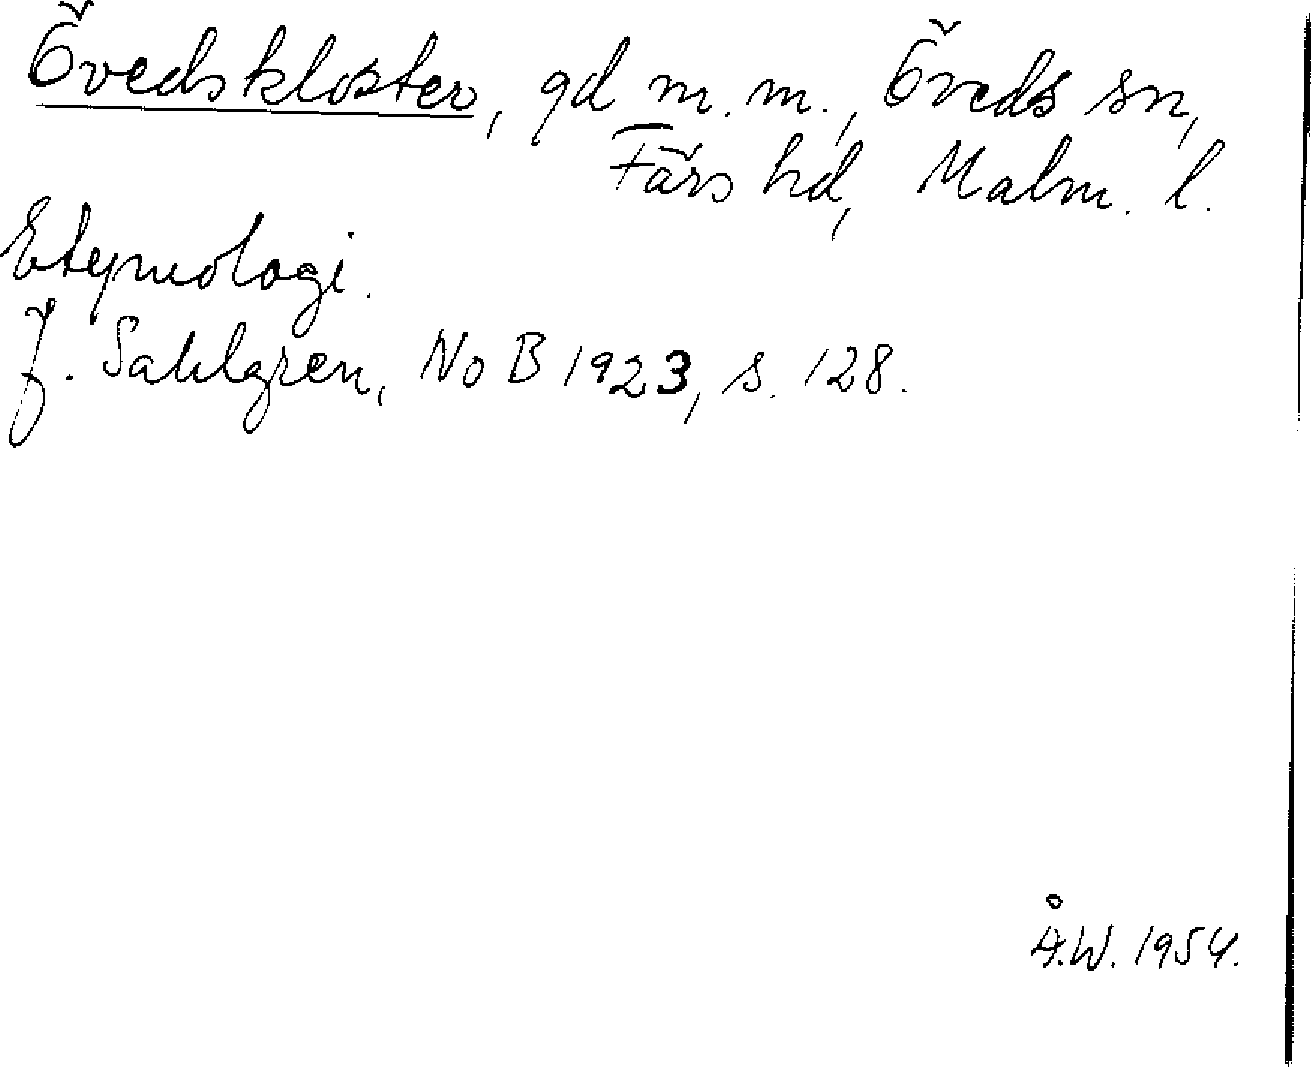 Övedskloster, gd m.m., Öveds sn,
Färs hd, Malm. l.
Etymologi.
J. Sahlgren, NoB 1923, s. 128.
Å.W. 1954.